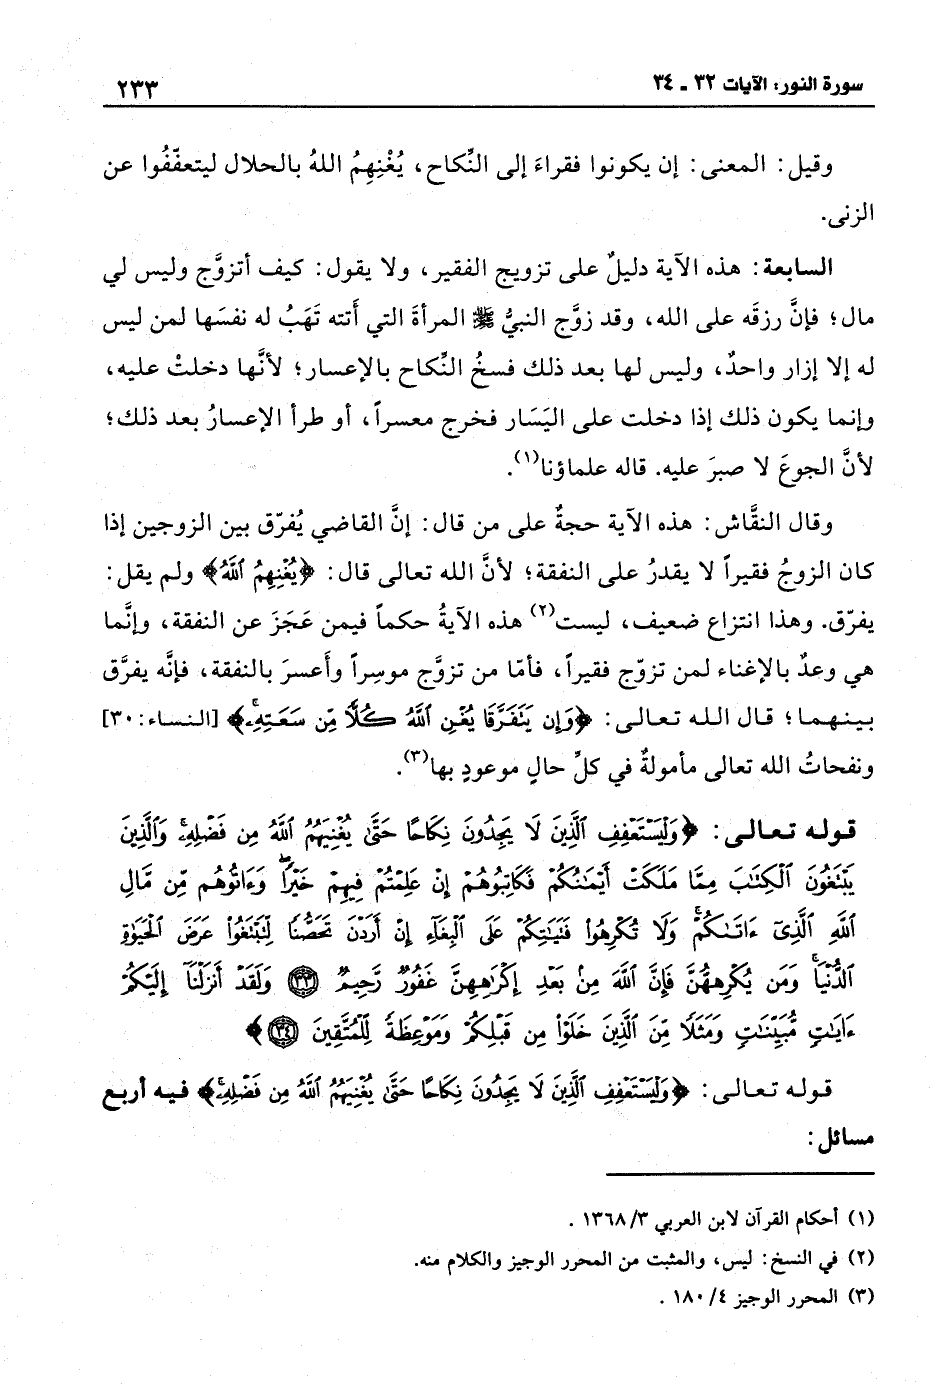 سورة النور: الآيات ٣٢ - ٣٤
٢٣٣
وقيل: المعنى: إن يكونوا فقراءَ إلى النِّكاح، يُغْنِهِمُ اللهُ بالحلال ليتعفّفُوا عن
الزنى.
السابعة: هذه الآية دليلٌ على تزويج الفقير، ولا يقول: كيف أتزوَّج وليس لي
مال؛ فإنَّ رزقَه على الله، وقد زوَّج النبيُّ ﷺ المرأةَ التي أَتته تَهَبُ له نفسَها لمن ليس
له إلا إزار واحدٌ، وليس لها بعد ذلك فسخُ النِّكاح بالإعسار؛ لأنَّها دخلتْ عليه،
وإنما يكون ذلك إذا دخلت على اليَسَار فخرج معسراً، أو طرأ الإعسارُ بعد ذلك؛
لأنَّ الجوعَ لا صبرَ عليه. قاله علماؤنا(١).
وقال النقَّاش: هذه الآية حجةٌ على من قال: إنَّ القاضي يُفرّق بين الزوجين إذا
كان الزوجُ فقيراً لا يقدرُ على النفقة؛ لأنَّ الله تعالى قال: ﴿يُغْنِهِمُ ٱللَّهُ﴾ ولم يقل:
يفرّق. وهذا انتزاع ضعيف، ليست(٢) هذه الآيةُ حكماً فيمن عَجَزَ عن النفقة، وإنَّما
هي وعدٌ بالإغناء لمن تزوّج فقيراً، فأمّا من تزوَّج موسِراً وأَعسرَ بالنفقة، فإنَّه يفرَّق
بينهما؛ قال الله تعالى: ﴿وَإِن يَتَفَرَّقَا يُغْنِ ٱللَّهُ كُلًّا مِّن سَعَتِهِۦۚ﴾ [النساء: ٣٠]
ونفحاتُ الله تعالى مأمولةٌ في كلِّ حالٍ موعودٍ بها(٣).
قوله تعالى: ﴿وَلْيَسْتَعْفِفِ ٱلَّذِينَ لَا يَجِدُونَ نِكَاحًا حَتَّىٰ يُغْنِيَهُمُ ٱللَّهُ مِن فَضْلِهِۦۗ وَٱلَّذِينَ
يَبْتَغُونَ ٱلْكِتَٰبَ مِمَّا مَلَكَتْ أَيْمَٰنُكُمْ فَكَاتِبُوهُمْ إِنْ عَلِمْتُمْ فِيهِمْ خَيْرًاۖ وَءَاتُوهُم مِّن مَّالِ
ٱللَّهِ ٱلَّذِىٓ ءَاتَىٰكُمْۚ وَلَا تُكْرِهُوا۟ فَتَيَٰتِكُمْ عَلَى ٱلْبِغَآءِ إِنْ أَرَدْنَ تَحَصُّنًا لِّتَبْتَغُوا۟ عَرَضَ ٱلْحَيَوٰةِ
ٱلدُّنْيَاۚ وَمَن يُكْرِههُّنَّ فَإِنَّ ٱللَّهَ مِنۢ بَعْدِ إِكْرَٰهِهِنَّ غَفُورٌ رَّحِيمٌ ﴿٣٣﴾ وَلَقَدْ أَنزَلْنَآ إِلَيْكُمْ
ءَايَٰتٍ مُّبَيِّنَٰتٍ وَمَثَلًا مِّنَ ٱلَّذِينَ خَلَوْا۟ مِن قَبْلِكُمْ وَمَوْعِظَةً لِّلْمُتَّقِينَ ﴿٣٤﴾﴾
قوله تعالى: ﴿وَلْيَسْتَعْفِفِ ٱلَّذِينَ لَا يَجِدُونَ نِكَاحًا حَتَّىٰ يُغْنِيَهُمُ ٱللَّهُ مِن فَضْلِهِۦۗ﴾ فيه أربع
مسائل:
(١) أحكام القرآن لابن العربي ٣/ ١٣٦٨ .
(٢) في النسخ: ليس، والمثبت من المحرر الوجيز والكلام منه.
(٣) المحرر الوجيز ٤/ ١٨٠ .